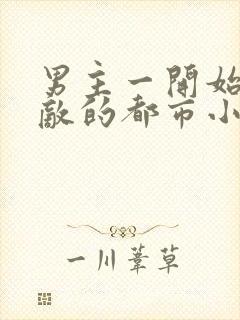 男主一开始
敵的都市小
一川葦草